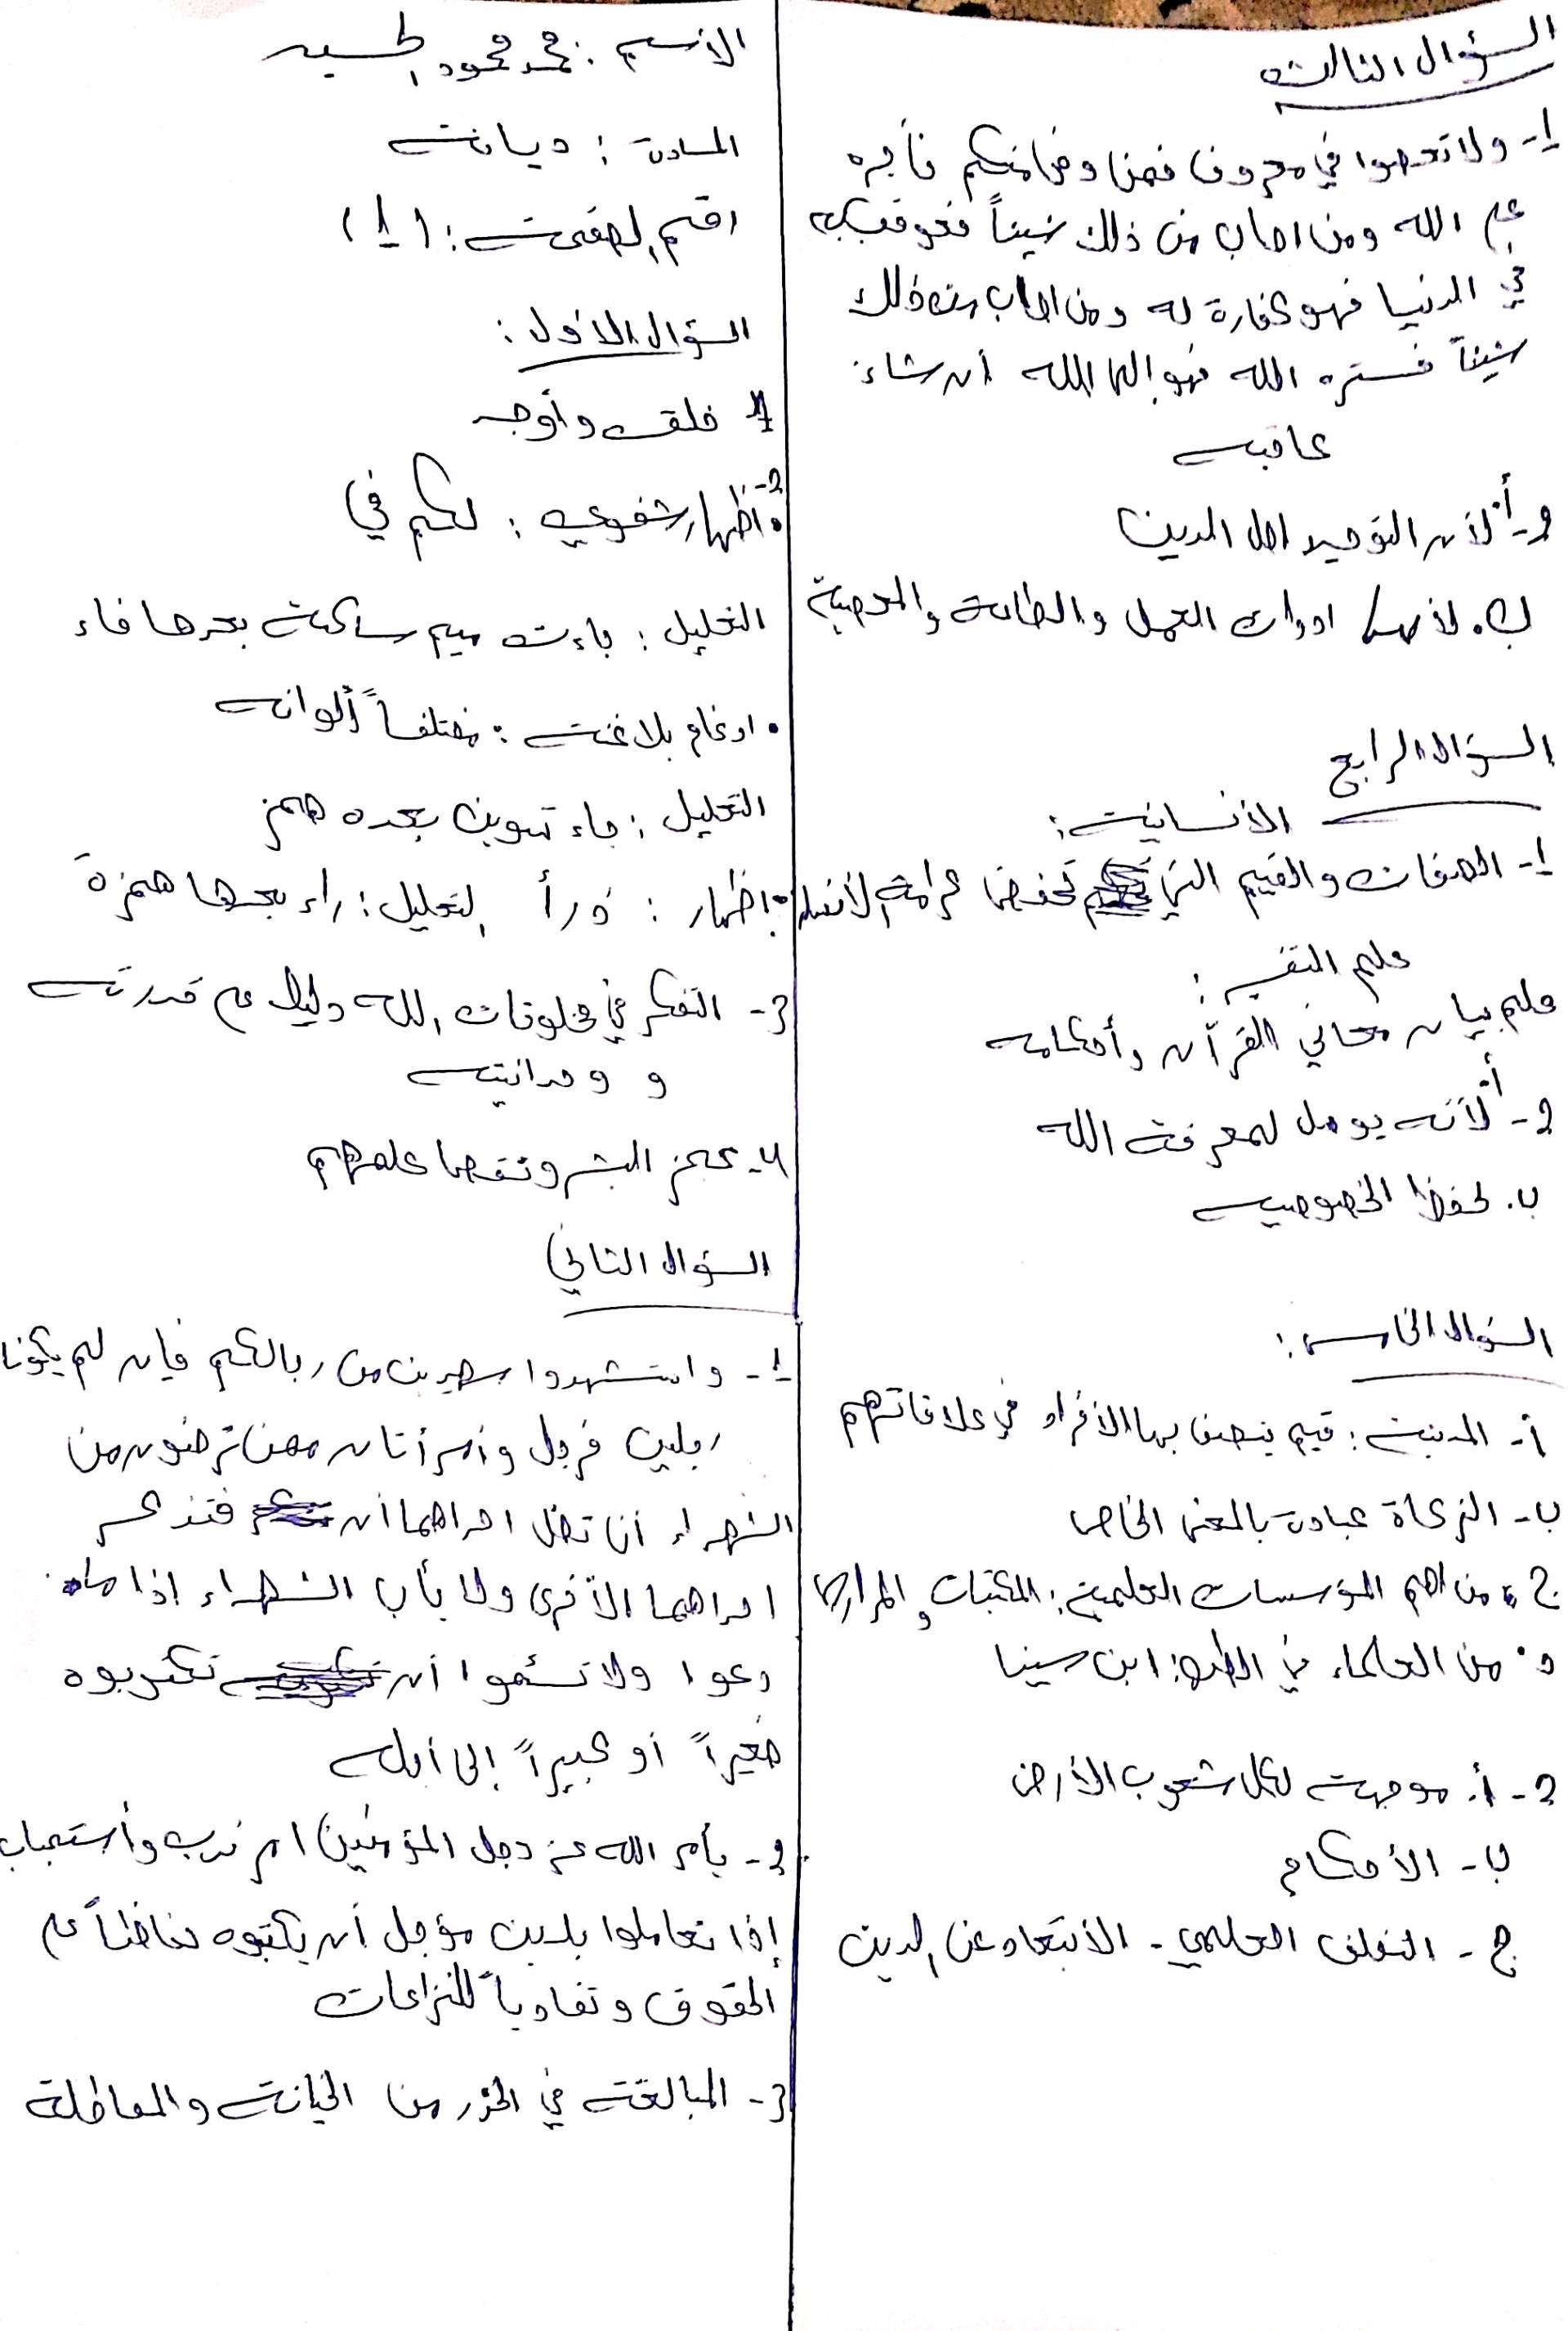 الأسم : محمد محمود الحسيد
المادة : ديانة
رقم الصفحة : (1)
السؤال الأول :
1- خلق وأوجد
2- • أظهار شفوي : لكم في
التعليل : جاءت ميم ساكنة بعدها فاء
• ادغام بلا غنة : مختلفاً ألوانه
التعليل : جاء تنوين بعده همز
• اظهار : ذرأ التعليل : راء بعدها همزة
3- التفكر في مخلوقات الله دليل على قدرته
و وحدانيته
4- عجز البشر ونقص علمهم
السؤال الثاني
1- واستشهدوا شهيدين من رجالكم فإن لم يكونا
رجلين فرجل وأمرأتان ممن ترضون من
الشهداء أن تضل احداهما أن فتذكر
احداهما الأخرى ولا يأب الشهداء اذا ما
دعوا ولا تسئموا أن تكتبوه
صغيراً أو كبيراً إلى أجله
2- يأمر الله عز وجل المؤمنين امر ندب وأستحباب
إذا تعاملوا بدين مؤجل أن يكتبوه حفاظاً على
الحقوق وتفادياً للنزاعات
3- المبالغة في الحذر من الخيانة والمماطلة
السؤال الثالث
1- ولا تعصوا في معروف فمن وفى منكم فأجره
على الله ومن اصاب من ذلك شيئاً فعوقب به
في الدنيا فهو كفارة له ومن اصاب من ذلك
شيئاً فستره الله فهو إلى الله أن شاء
عاقبه
2- أ. لأن التوحيد اصل الدين
ب. لأنها ادوات العمل والطاعة والمعصية
السؤال الرابع
الأنسانية :
1- الصفات والقيم التي تحفض كرامة الأنسان
علم التفسير :
علم بيان معاني القرآن وأحكامه
2- أ. لأنه يوصل لمعرفة الله
ب. لحفظ الخصوصية
السؤال الخامس :
أ- المدنية : قيم يتصف بها الأفراد في علاقاتهم
ب- الزكاة عبادة بالمعنى الخاص
ج. من اهم المؤسسات العلمية : المكتبات والمدارس
د. من العلماء في الطب : ابن سينا
2- أ. موجهة لكل شعوب الأرض
ب- الأحكام
ج- التخلف العلمي - الأبتعاد عن الدين